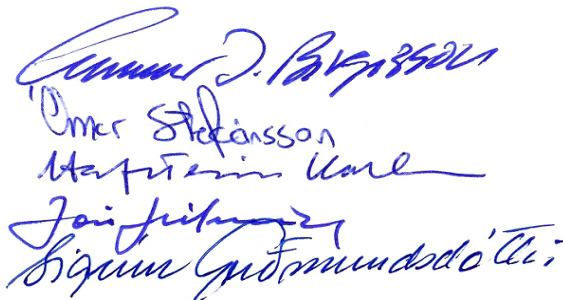 Gunnar I. Birgisson
Ómar Stefánsson
Hafsteinn Karls
Jón
Sigrún Guðmundsdóttir